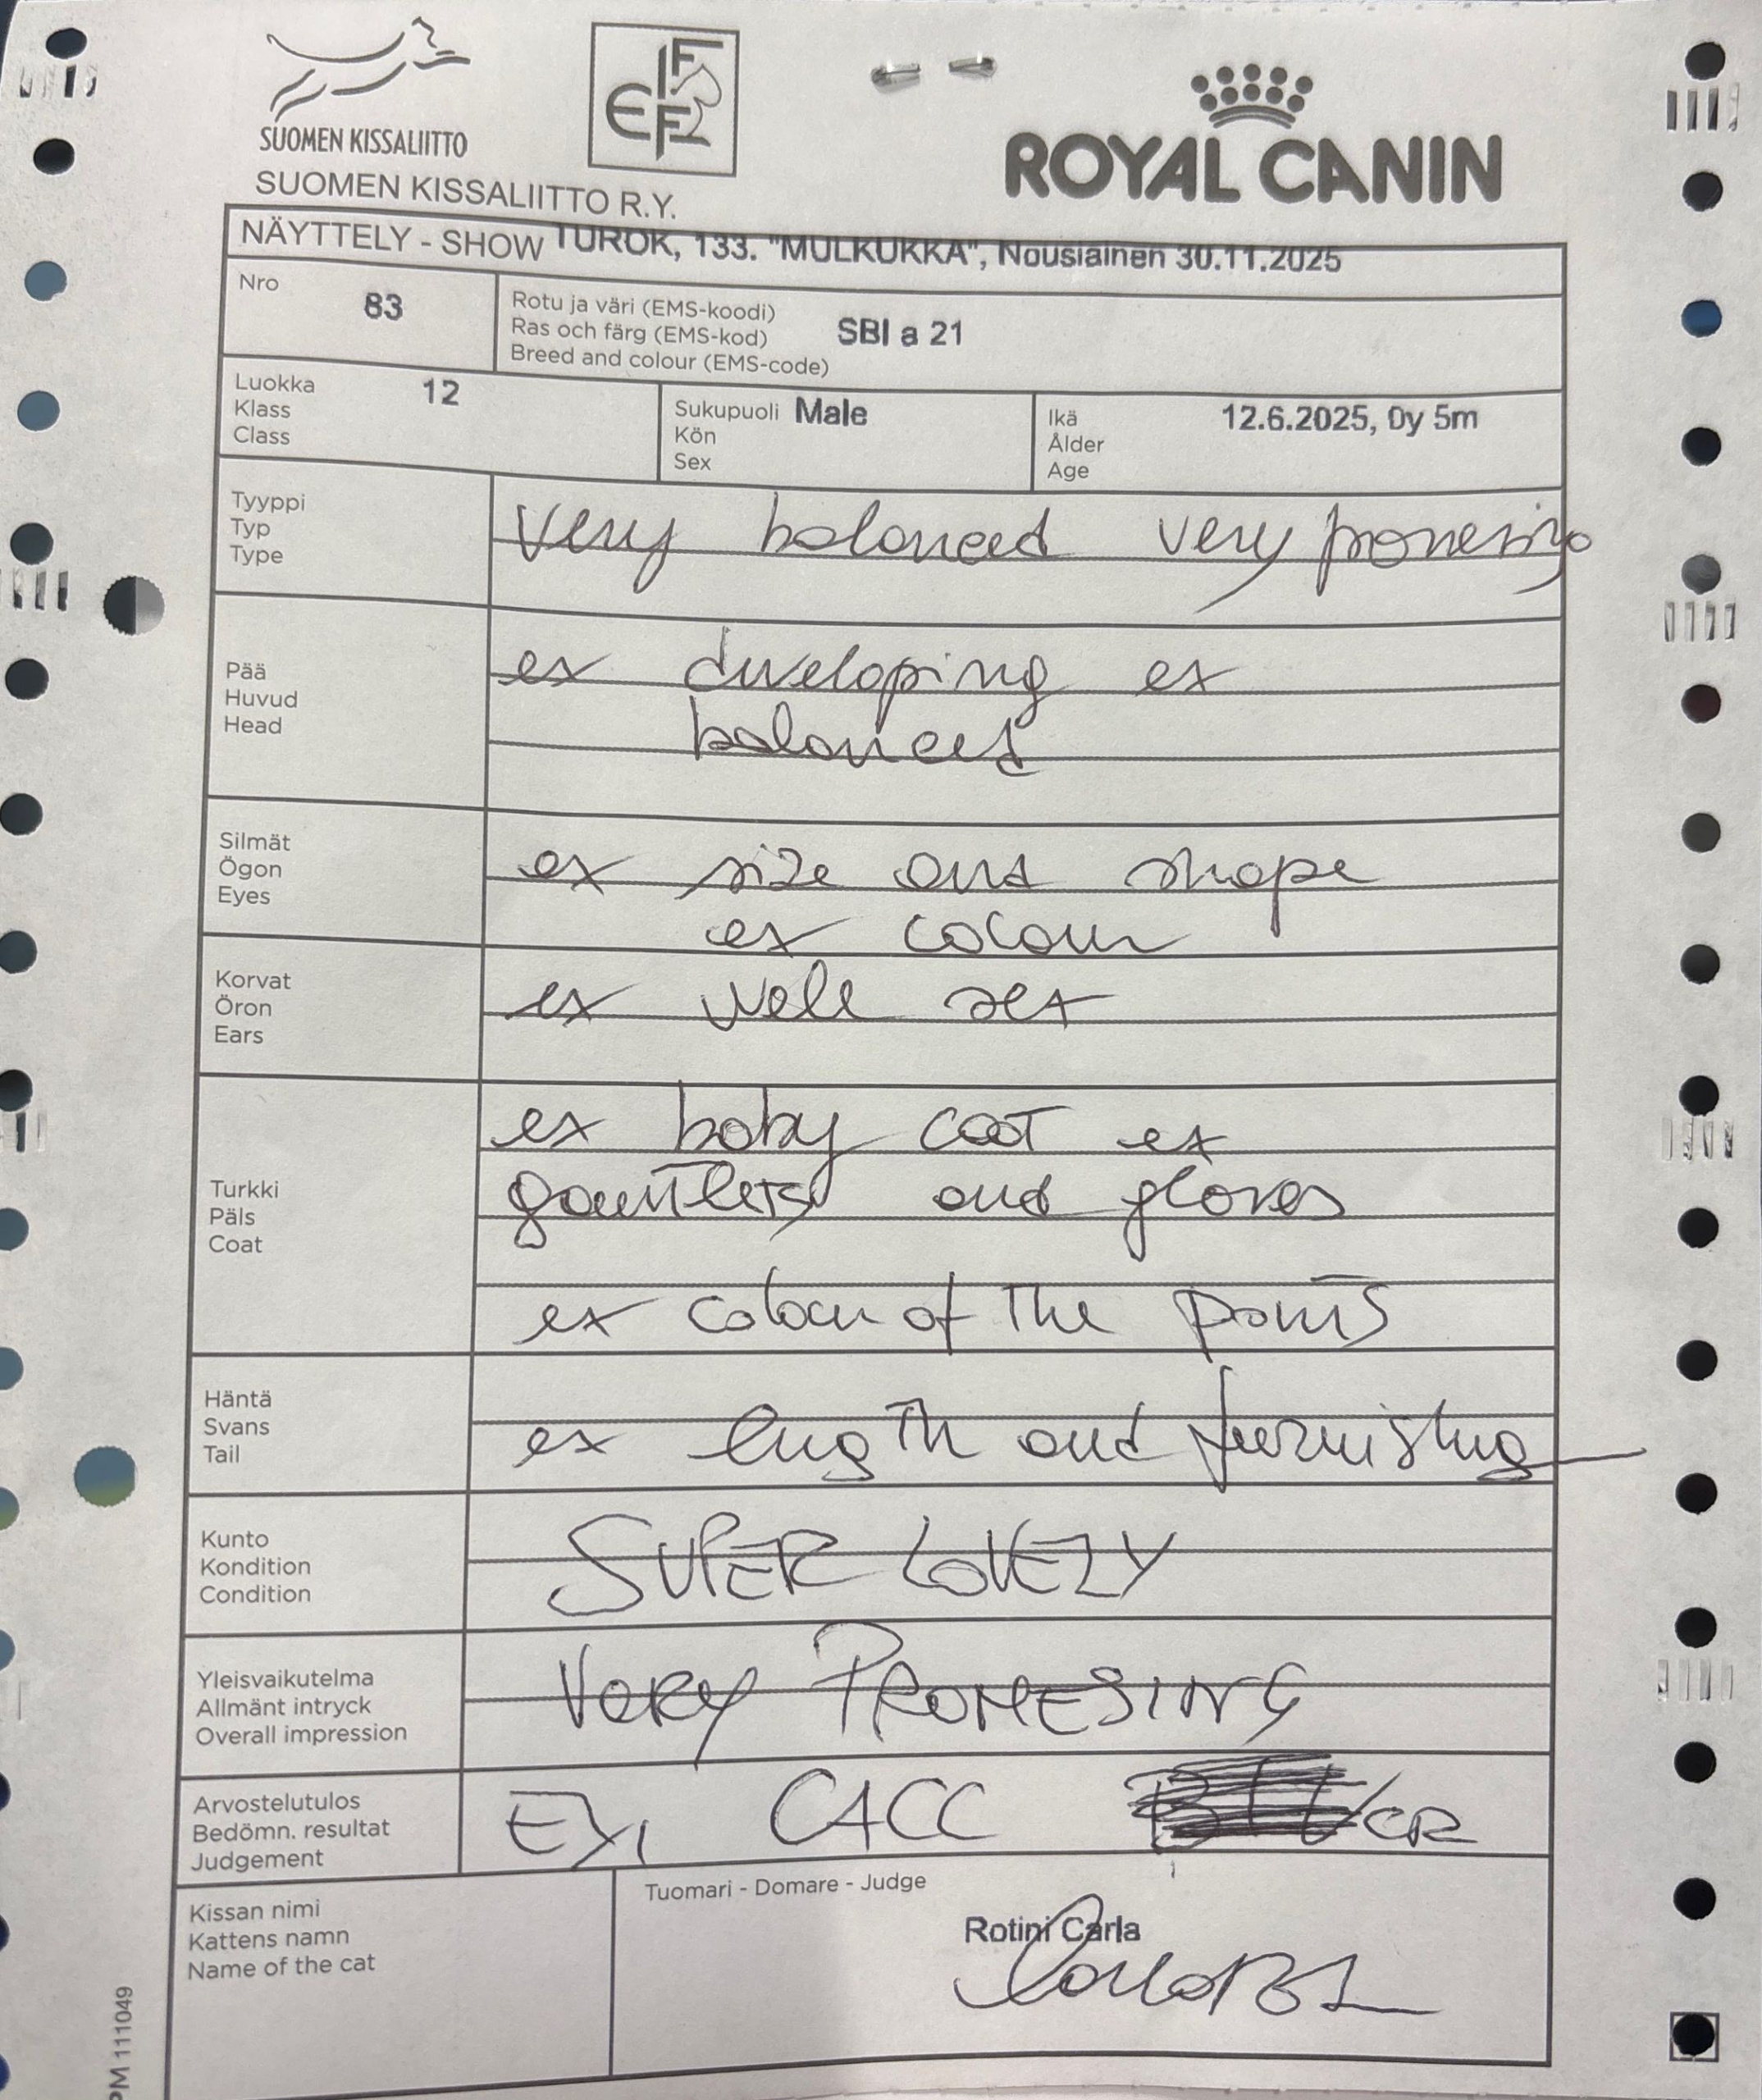 SUOMEN KISSALIITTO
FIFE
ROYAL CANIN
SUOMEN KISSALIITTO R.Y.
NÄYTTELY - SHOW TUROK, 133. "MULKUKKA", Nousiainen 30.11.2025
Nro 83
Rotu ja väri (EMS-koodi)
Ras och färg (EMS-kod) SBI a 21
Breed and colour (EMS-code)
Luokka 12
Klass
Class
Sukupuoli Male
Kön
Sex
Ikä 12.6.2025, 0y 5m
Ålder
Age
Tyyppi
Typ
Type
very balanced very promesing
Pää
Huvud
Head
ex developing ex
balanced
Silmät
Ögon
Eyes
ex size and shape
ex colour
Korvat
Öron
Ears
ex well set
Turkki
Päls
Coat
ex baby coat ex
gauntlets and gloves
ex colour of the points
Häntä
Svans
Tail
ex length and furnishing
Kunto
Kondition
Condition
SUPER LOVELY
Yleisvaikutelma
Allmänt intryck
Overall impression
VERY PROMESING
Arvostelutulos
Bedömn. resultat
Judgement
EX1 CACC CR
Kissan nimi
Kattens namn
Name of the cat
Tuomari - Domare - Judge
Rotini Carla
PM 111049